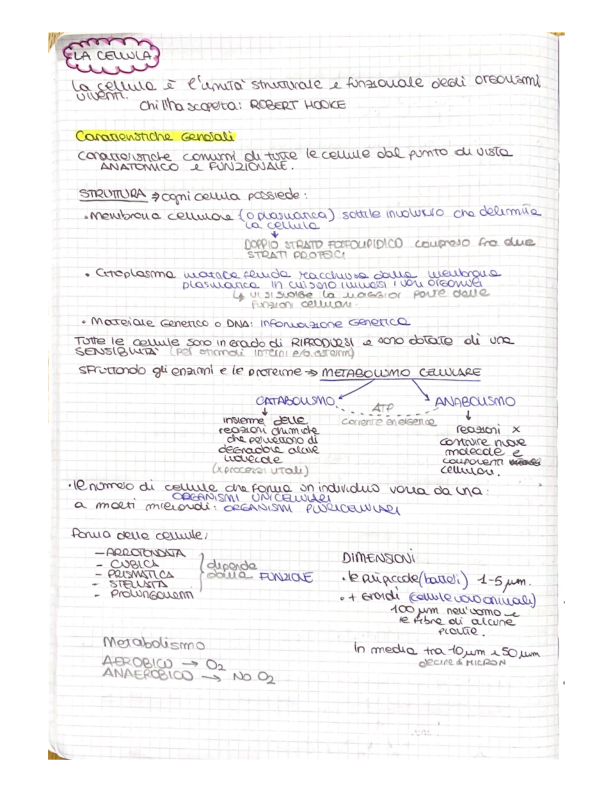 LA CELLULA
La cellula è l'unità strutturale e funzionale degli organismi
viventi.
chi l'ha scoperta: ROBERT HOOKE
Caratteristiche Generali
Caratteristiche comuni di tutte le cellule dal punto di vista
ANATOMICO e FUNZIONALE.
STRUTTURA → ogni cellula possiede:
• Membrana cellulare (o plasmatica) sottile involucro che delimita
la cellula
DOPPIO STRATO FOSFOLIPIDICO compreso fra due
STRATI PROTEICI
• Citoplasma matrice fluida racchiusa dalla membrana
plasmatica in cui sono immersi i vari organelli
↳ vi si svolge la maggior parte delle
funzioni cellulari.
• Materiale Genetico o DNA: informazione Genetica
Tutte le cellule sono in grado di RIPRODURSI e sono dotate di una
SENSIBILITÀ (per stimoli interni e/o esterni)
Sfruttando gli enzimi e le proteine → METABOLISMO CELLULARE
CATABOLISMO ATP ANABOLISMO
corrente energetica
insieme delle
reazioni chimiche
che permettono di
degradare alcune
molecole
(x processi vitali)
reazioni x
costruire nuove
molecole e
componenti
cellulari.
• le numero di cellule che forma un individuo varia da una:
ORGANISMI UNICELLULARI
a molti miliardi: ORGANISMI PLURICELLULARI
Forma delle cellule:
- ARROTONDATA
- CUBICA
- PRISMATICA
- STELLATA
- Prolungamenti
dipende
dalla FUNZIONE
DIMENSIONI
• le più piccole (batteri) 1-5 µm.
• + Grandi (cellule uovo animali)
100 µm nell'uomo e
le fibre di alcune
piante.
In media tra 10 µm e 50 µm
decine di MICRON
Metabolismo
AEROBICO → O2
ANAEROBICO → No O2